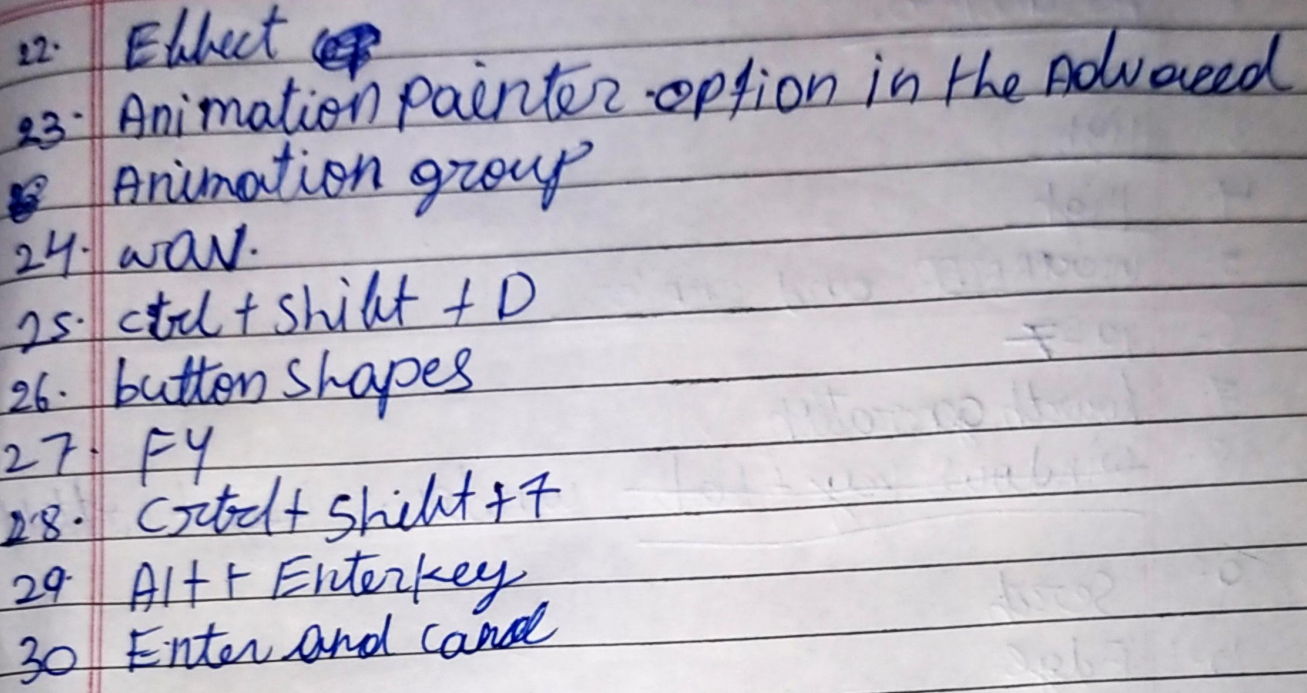 22. Effect
23. Animation painter option in the Advanced
Animation group
24. wav.
25. ctrl + Shift + D
26. button shapes
27. F4
28. Crtrl + Shift + 7
29 Alt + Enter key
30 Enter and cancel